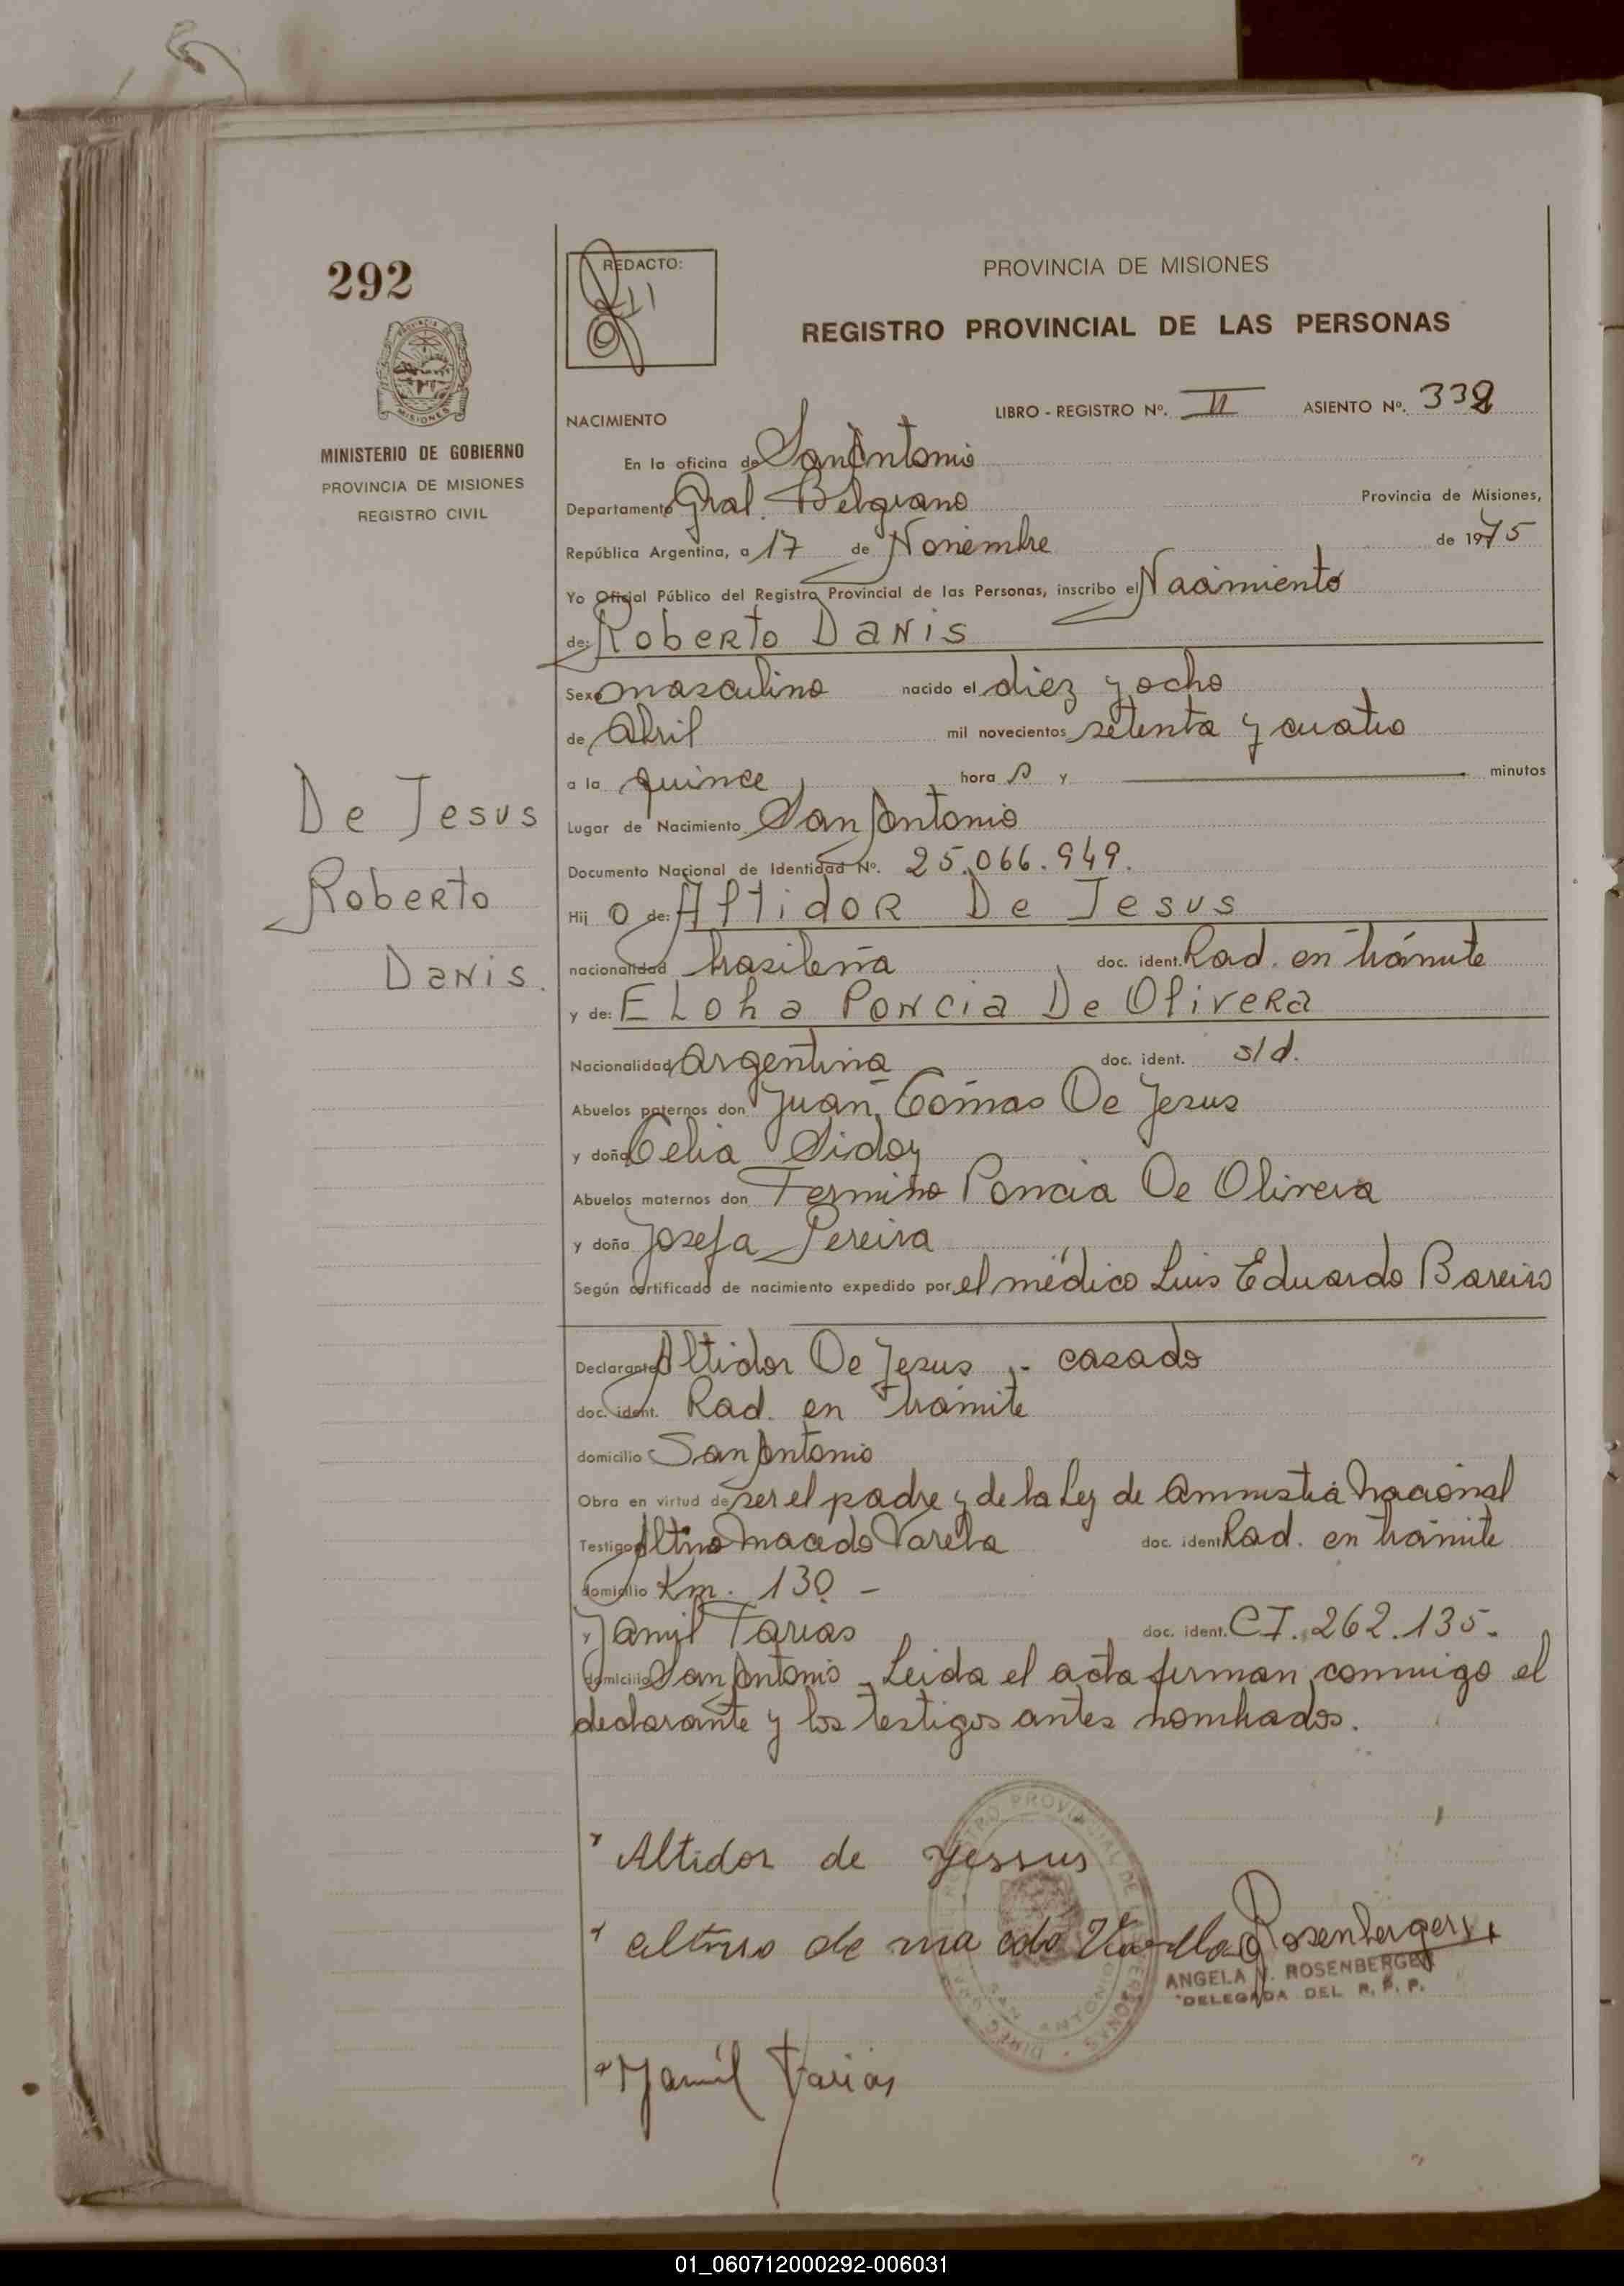 292
REDACTO:
PROVINCIA DE MISIONES
REGISTRO PROVINCIAL DE LAS PERSONAS
MINISTERIO DE GOBIERNO
PROVINCIA DE MISIONES
REGISTRO CIVIL
NACIMIENTO LIBRO - REGISTRO Nº. II ASIENTO Nº. 332
En la oficina de San Antonio
Departamento Gral. Belgrano Provincia de Misiones,
República Argentina, a 17 de Noviembre de 1975
Yo Oficial Público del Registro Provincial de las Personas, inscribo el Nacimiento
de: Roberto Danis
Sexo masculino nacido el diez y ocho
de Abril mil novecientos setenta y cuatro
a la quince hora s y minutos
Lugar de Nacimiento San Antonio
Documento Nacional de Identidad Nº. 25.066.949.
De Jesus
Roberto
Danis.
Hij o de: Altidor De Jesus
nacionalidad brasileña doc. ident. Rad. en trámite
y de: Eloha Poncia De Olivera
Nacionalidad argentina doc. ident. s/d.
Abuelos paternos don Juan Tómas De Jesus
y doña Celia Sidoy
Abuelos maternos don Fermino Poncia De Olivera
y doña Josefa Pereira
Según certificado de nacimiento expedido por el médico Luis Eduardo Bareiro
Declarante Altidor De Jesus - casado
doc. ident. Rad. en trámite
domicilio San Antonio
Obra en virtud de ser el padre y de la Ley de Amnistia Nacional
Testigo Altivo Macedo Varella doc. ident. Rad. en trámite
domicilio Km. 130 -
y Jamil Farias doc. ident. CI. 262.135.
domicilio San Antonio - Leida el acta firman conmigo el
declarante y los testigos antes nombrados.
Altidor de Jessus
altivo de macedo Varella
Rosenberger
ANGELA V. ROSENBERGER
DELEGADA DEL R. P. P.
Jamil Farias
01_060712000292-006031